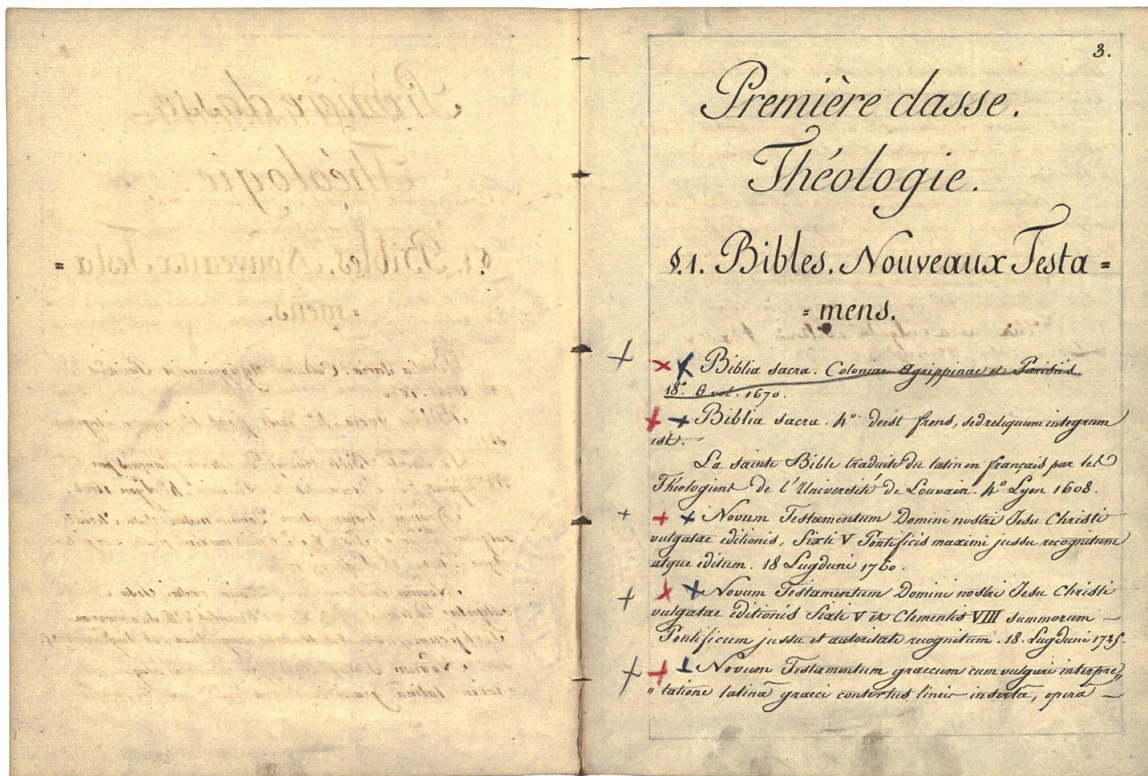 3.
Première classe.
Théologie.
§.1. Bibles. Nouveaux Testa=
=mens.
Biblia sacra. Coloniae Agrippinae et Parisiis
18.° 6 vol. 1670.
Biblia sacra. 4° deest frons, sed reliquum integrum
est.
La sainte Bible traduite du latin en français par les
Théologiens de l'Université de Louvain. 4° Lyon 1608.
Novum Testamentum Domini nostri Jesu Christi
vulgatae editionis, Sixti V Pontificis maximi jussu recognitum
atque editum. 18 Lugduni 1760.
Novum Testamentum Domini nostri Jesu Christi
vulgatae editionis Sixti V et Clementis VIII summorum –
Pontificum jussu et autoritate recognitum. 18. Lugduni 1725.
Novum Testamentum graecum cum vulgari interpre„
„tatione latinâ graeci contextus lineis insertâ, operâ –